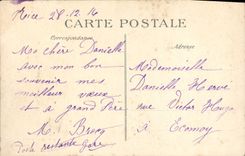 Nice 28-12-16
CARTE POSTALE
Correspondance
Adresse
Ma chère Danielle
avec mon bon
souvenir mes
meilleur vœux
et à grand Père
M. Brecq
Poste restante Gare
Mademoiselle
Danielle Hervé
rue Victor Hugo
à Ecomoy